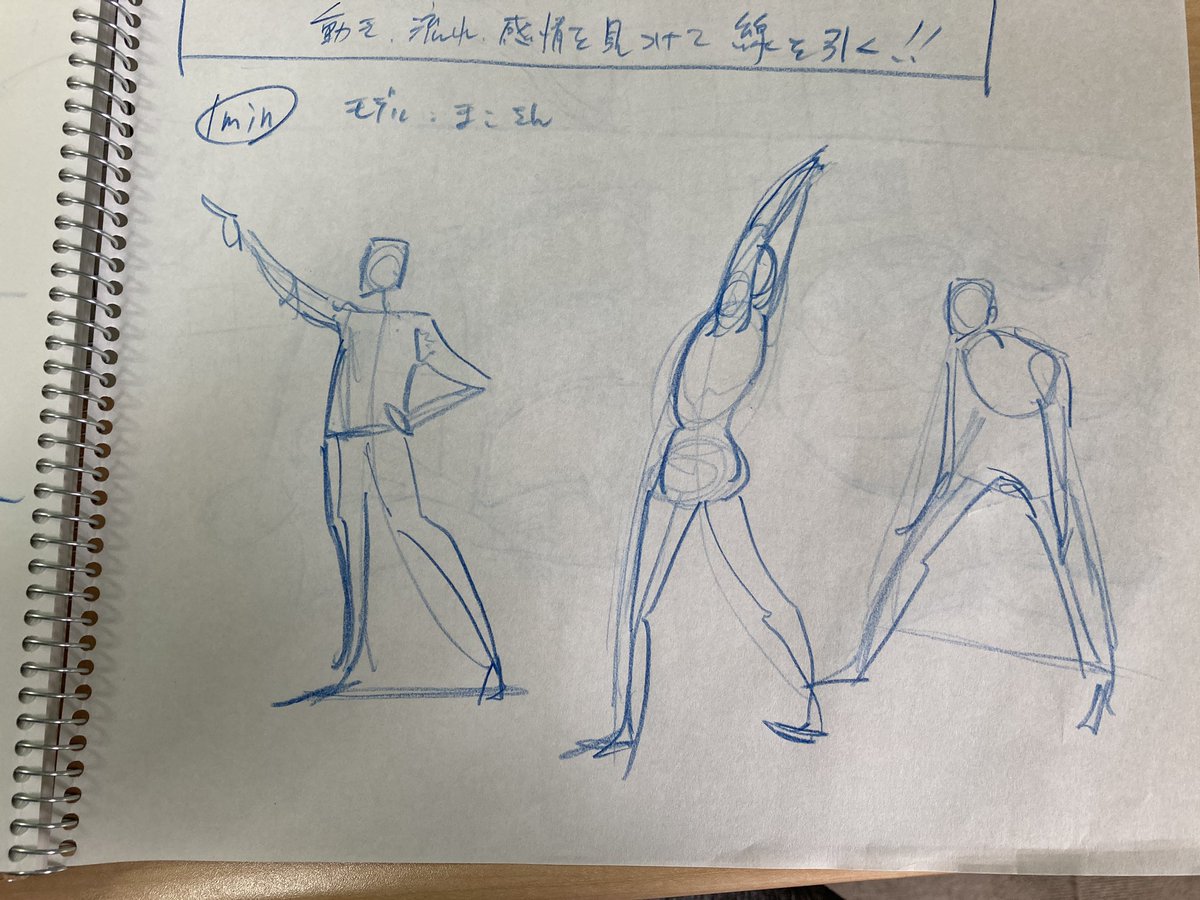 動き、流れ、感情を見つけて 線を引く!!
1min
モデル:まこさん